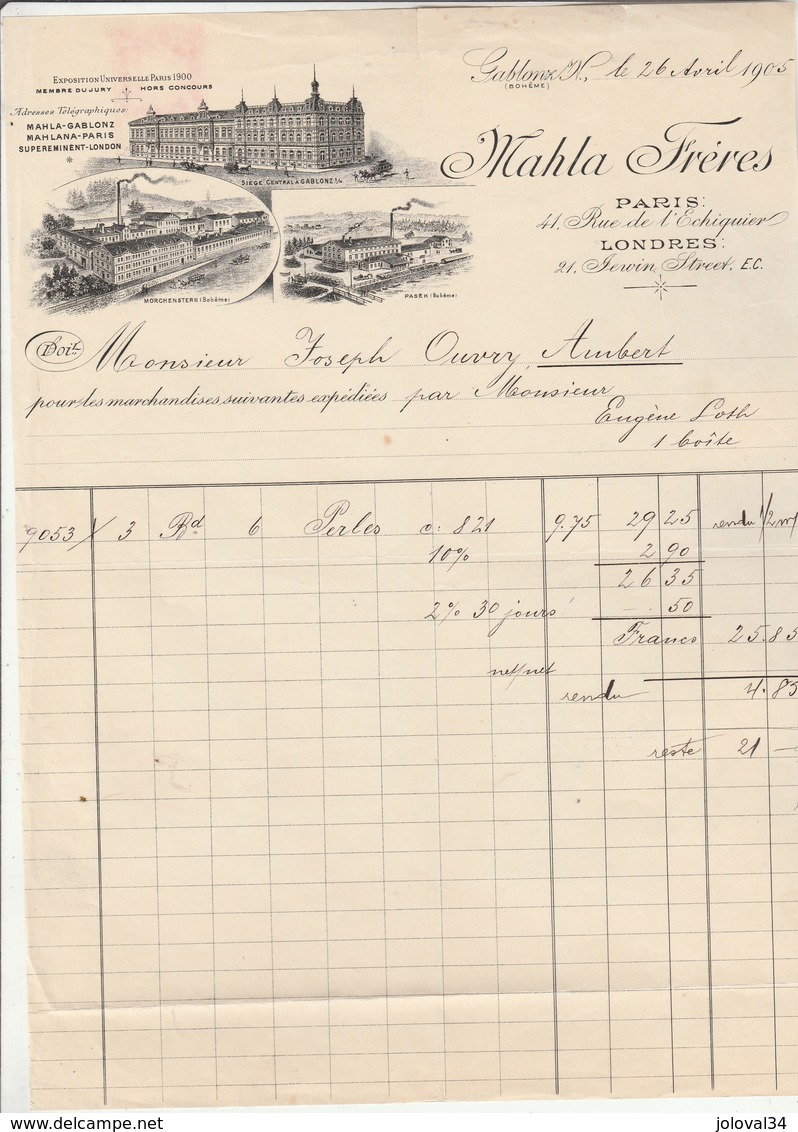 Exposition Universelle Paris 1900
MEMBRE DU JURY HORS CONCOURS
Adresses Télégraphiques:
MAHLA-GABLONZ
MAHLANA-PARIS
SUPEREMINENT-LONDON
SIEGE CENTRAL À GABLONZ S/N.
MORCHENSTERN (Bohême)
PASEK (Bohême)
Gablonz N., le 26 Avril 1905
(BOHÊME)
Mahla Fréres
PARIS:
41, Rue de l'Echiquier
LONDRES:
21, Jewin Street, E.C.
Doit Monsieur Joseph Ouvry, Ambert
pour les marchandises suivantes expédiées par Monsieur
Eugène Loth
1 boîte
9053 / 3 Rd 6 Perles c: 821 9.75 29 25 rendu 1/2 m/
10% 2 90
26 35
2% 30 jours - . 50
Francs 25.85
net/net
rendu 4.85
reste 21 —
joloval34